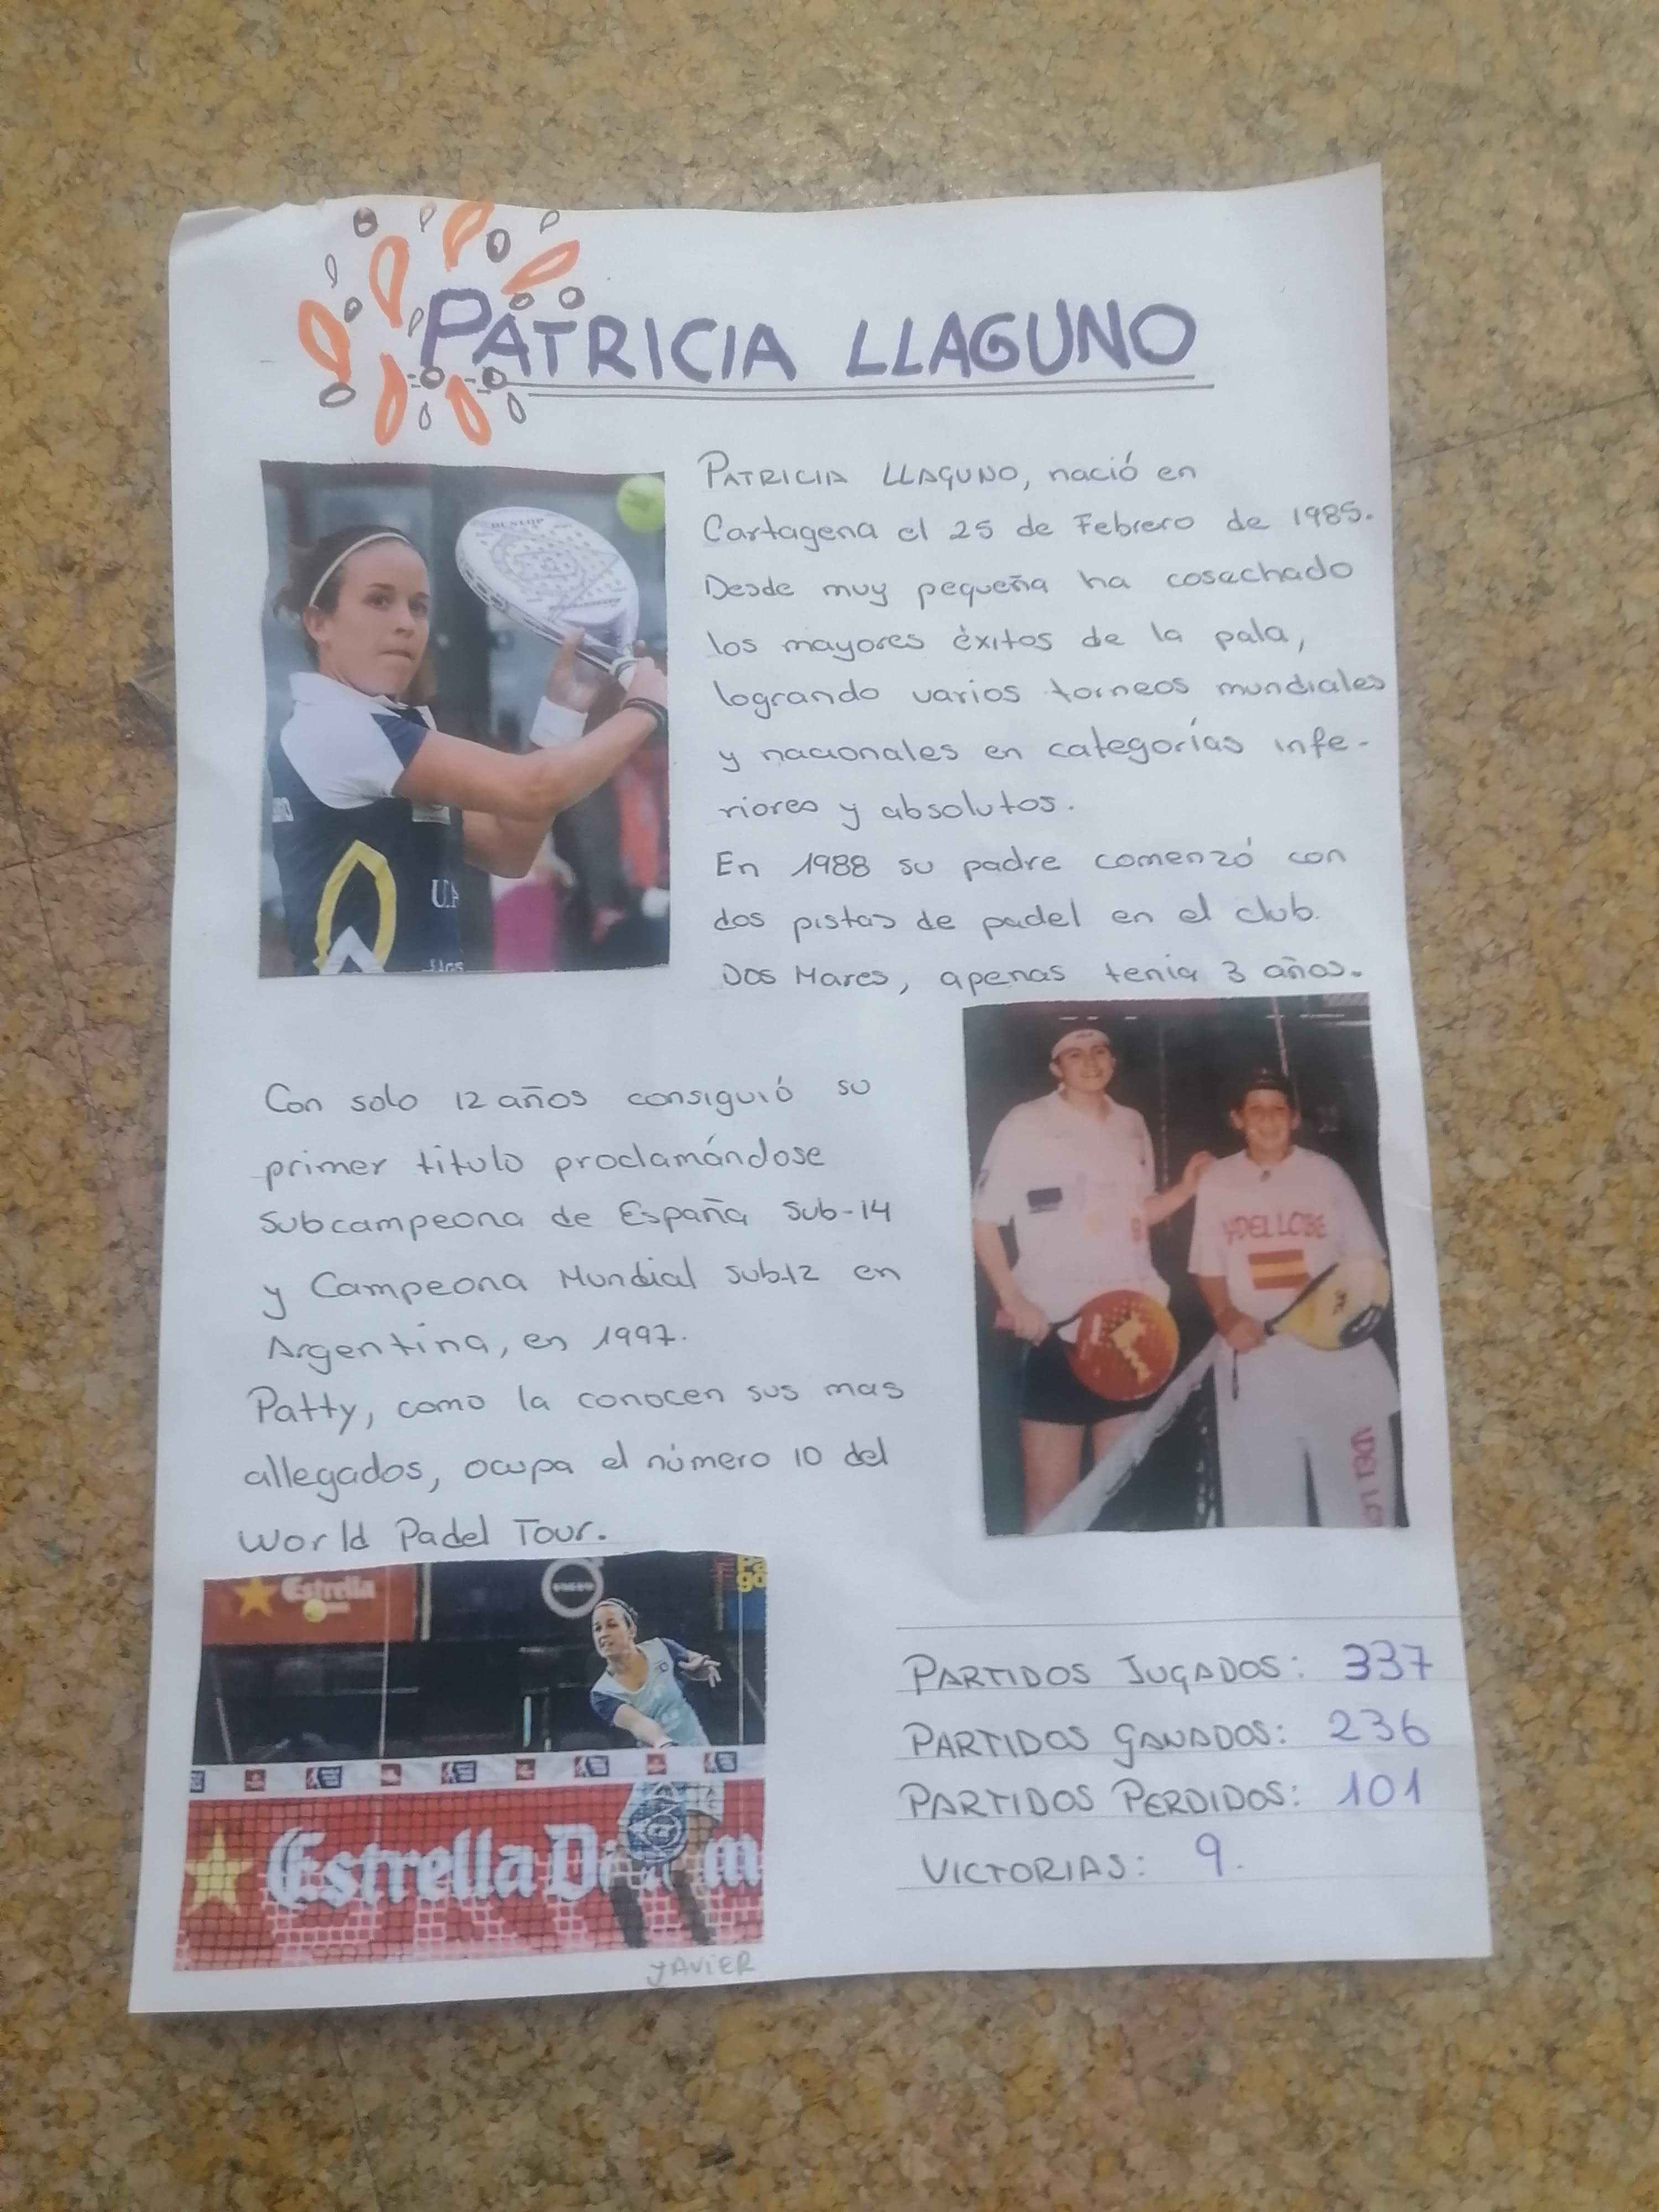 PATRICIA LLAGUNO
PATRICIA LLAGUNO, nació en
Cartagena el 25 de Febrero de 1985.
Desde muy pequeña ha cosechado
los mayores éxitos de la pala,
logrando varios torneos mundiales
y nacionales en categorías infe-
riores y absolutos.
En 1988 su padre comenzó con
dos pistas de padel en el club.
Dos Mares, apenas tenia 3 años.
DUNLOP
Con solo 12 años consiguió su
primer titulo proclamándose
subcampeona de España Sub-14
y Campeona Mundial Sub-12 en
Argentina, en 1997.
Patty, como la conocen sus mas
allegados, ocupa el número 10 del
World Padel Tour.
Estrella
Estrella D
m
PARTIDOS JUGADOS: 337
PARTIDOS GANADOS: 236
PARTIDOS PERDIDOS: 101
VICTORIAS: 9.
JAVIER